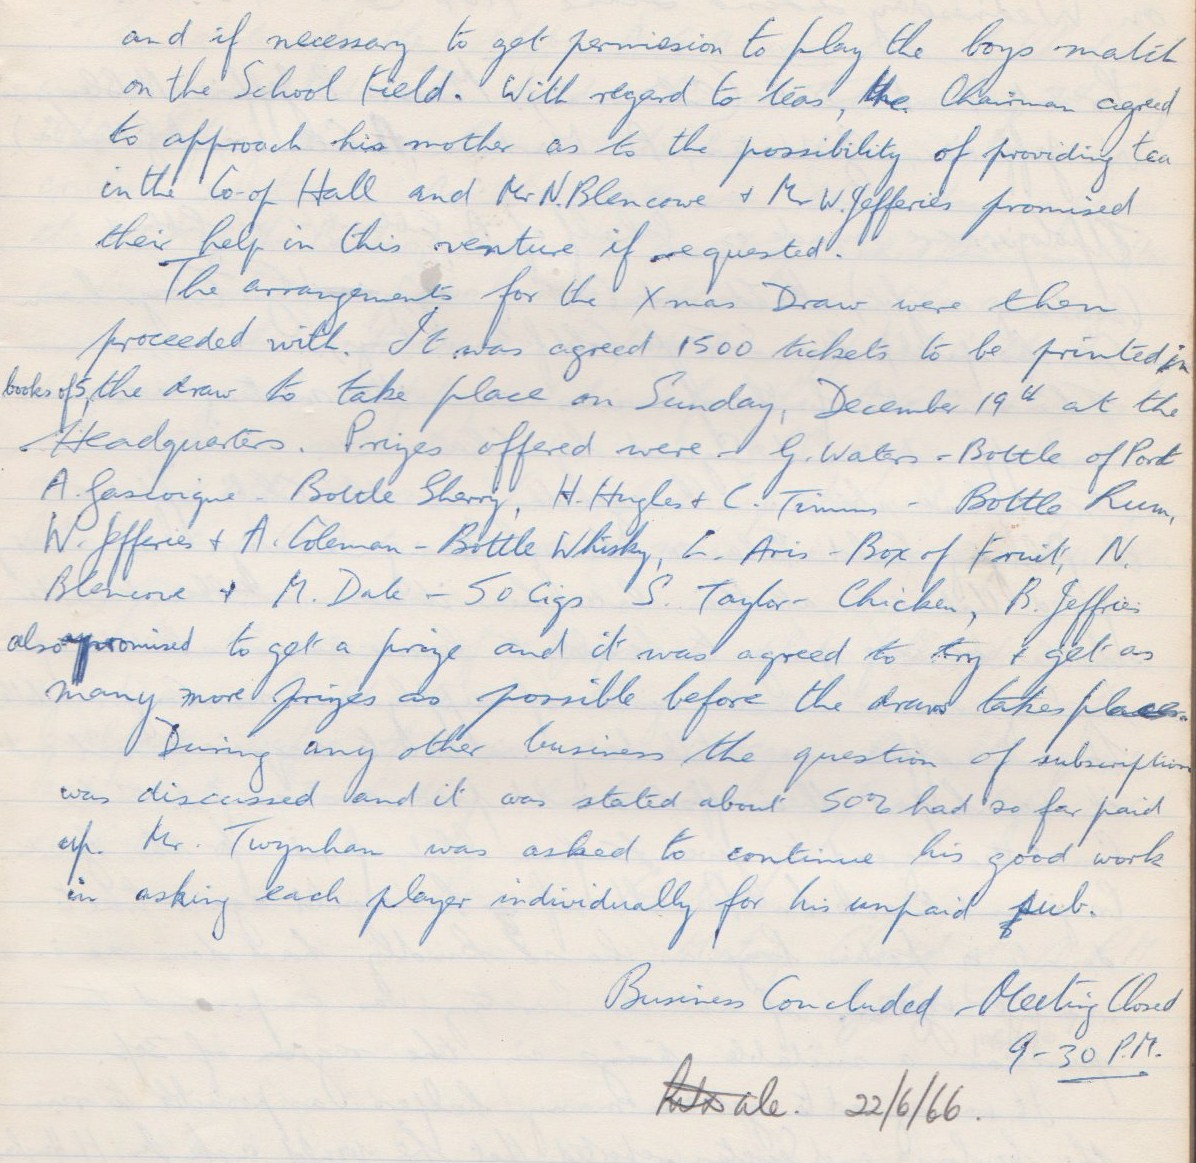 and if necessary to get permission to play the boys match
on the School Field. With regard to teas, the Chairman agreed
to approach his mother as to the possibility of providing tea
in the Co-op Hall and Mr N. Blencowe + Mr W. Jefferies promised
their help in this venture if requested.
The arrangements for the Xmas Draw were then
proceeded with. It was agreed 1500 tickets to be printed in
books of 5, the draw to take place on Sunday, December 19th at the
Headquarters. Prizes offered were - G. Waters - Bottle of Port
A. Gascoigne - Bottle Sherry, H. Hughes + C. Timms - Bottle Rum,
W. Jefferies + A. Coleman - Bottle Whisky, L. Aris - Box of Fruit, N.
Blencowe + M. Dale - 50 Cigs S. Taylor - Chicken, R. Jeffries
also promised to get a prize and it was agreed to try + get as
many more prizes as possible before the draw takes place.
During any other business the question of subscription
was discussed and it was stated about 50% had so far paid
up. Mr. Twynham was asked to continue his good work
in asking each player individually for his unpaid sub.
Business Concluded - Meeting Closed
9-30 P.M.
22/6/66.